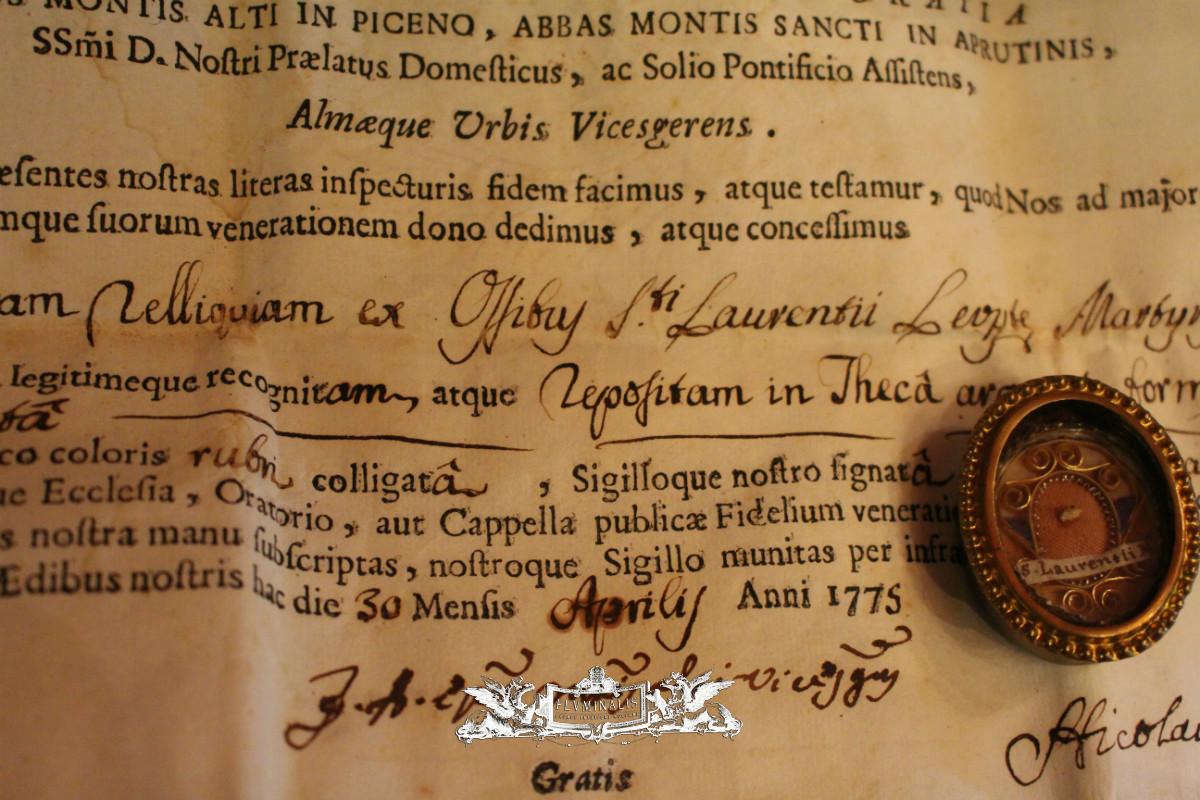 MONTIS ALTI IN PICENO, ABBAS MONTIS SANCTI IN APRUTINIS,
SSm̃i D. Noſtri Prælatus Domeſticus, ac Solio Pontificio Aſſiſtens,
Almæque Urbis Vicesgerens.
eſentes noſtras literas inſpecturis fidem facimus, atque teſtamur, quod Nos ad major
mque ſuorum venerationem dono dedimus, atque conceſſimus
am Relliquiam ex Oſſibus S.ti Laurentii Martyr
legitimeque recognitam, atque repoſitam in Thecâ form
tâ
co coloris rubri colligatâ, Sigilloque noſtro ſignatâ
ue Eccleſia, Oratorio, aut Cappella publicæ Fidelium venerati
s noſtra manu ſubſcriptas, noſtroque Sigillo munitas per infra
Ædibus noſtris hac die 30 Menſis Aprilis Anni 1775
S. Laurentii
FLVMINALIS
Nicola
Gratis